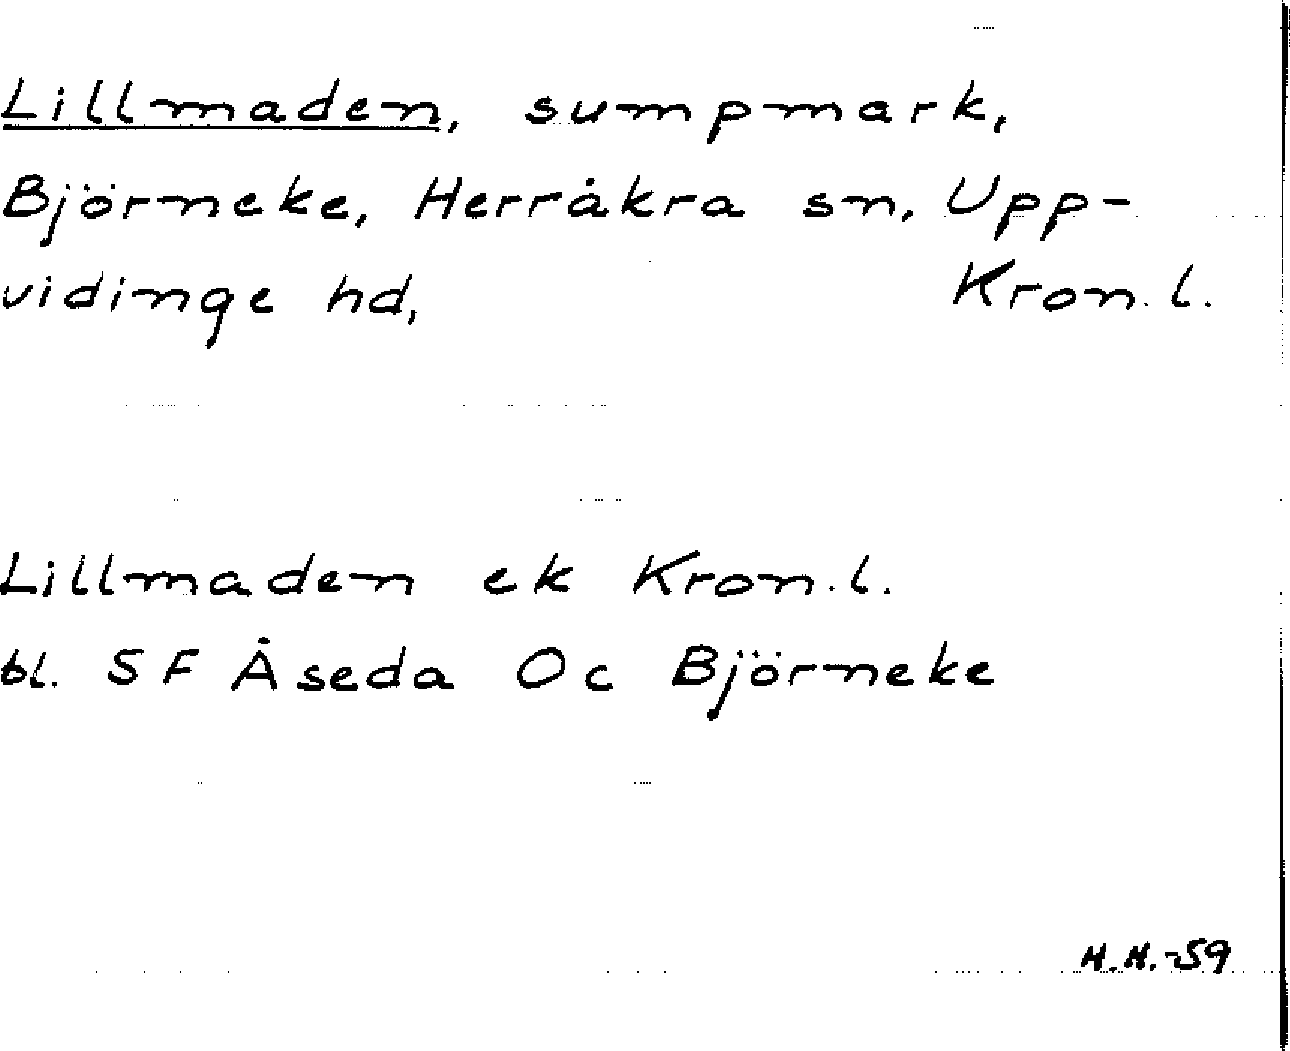 Lillmaden, sumpmark,
Björneke, Herråkra sn, Upp-
vidinge hd, Kron. l.
Lillmaden ek Kron. l.
bl. SF Åseda Oc Björneke
H.H.-59